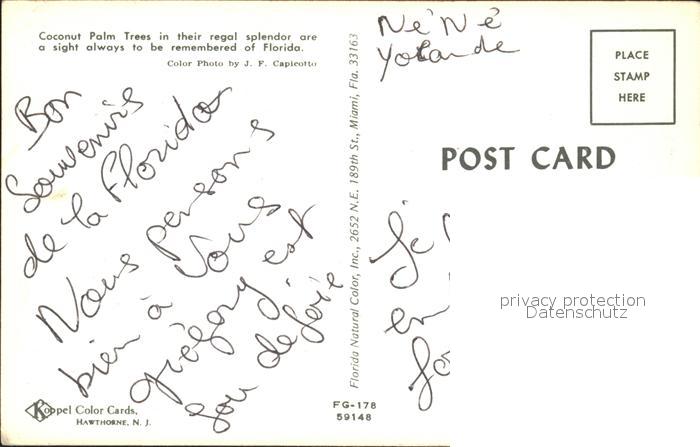 Coconut Palm Trees in their regal splendor are
a sight always to be remembered of Florida.
Color Photo by J. F. Capicotto
Bon
Souvenirs
de la Florida
Nous pensons
bien à Vous
grégory est
Koppel Color Cards,
HAWTHORNE, N. J.
Florida Natural Color, Inc., 2652 N.E. 189th St., Miami, Fla. 33163
FG-178
59148
Né Né
Yolande
PLACE
STAMP
HERE
POST CARD
en
privacy protection
Datenschutz